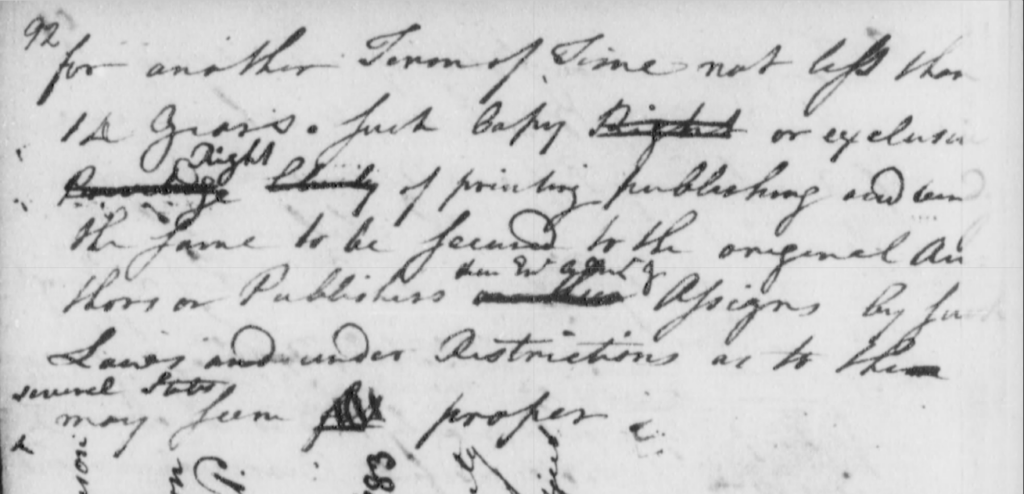 92
for another Term of Time not less than
14 Years. Such Copy Right or exclusiv
Right
of printing publishing and ven
the same to be secured to the original Au
thors or Publishers their Exrs. Admrs. &
Assigns by such
Laws and under Restrictions as to the
several States
may seem proper